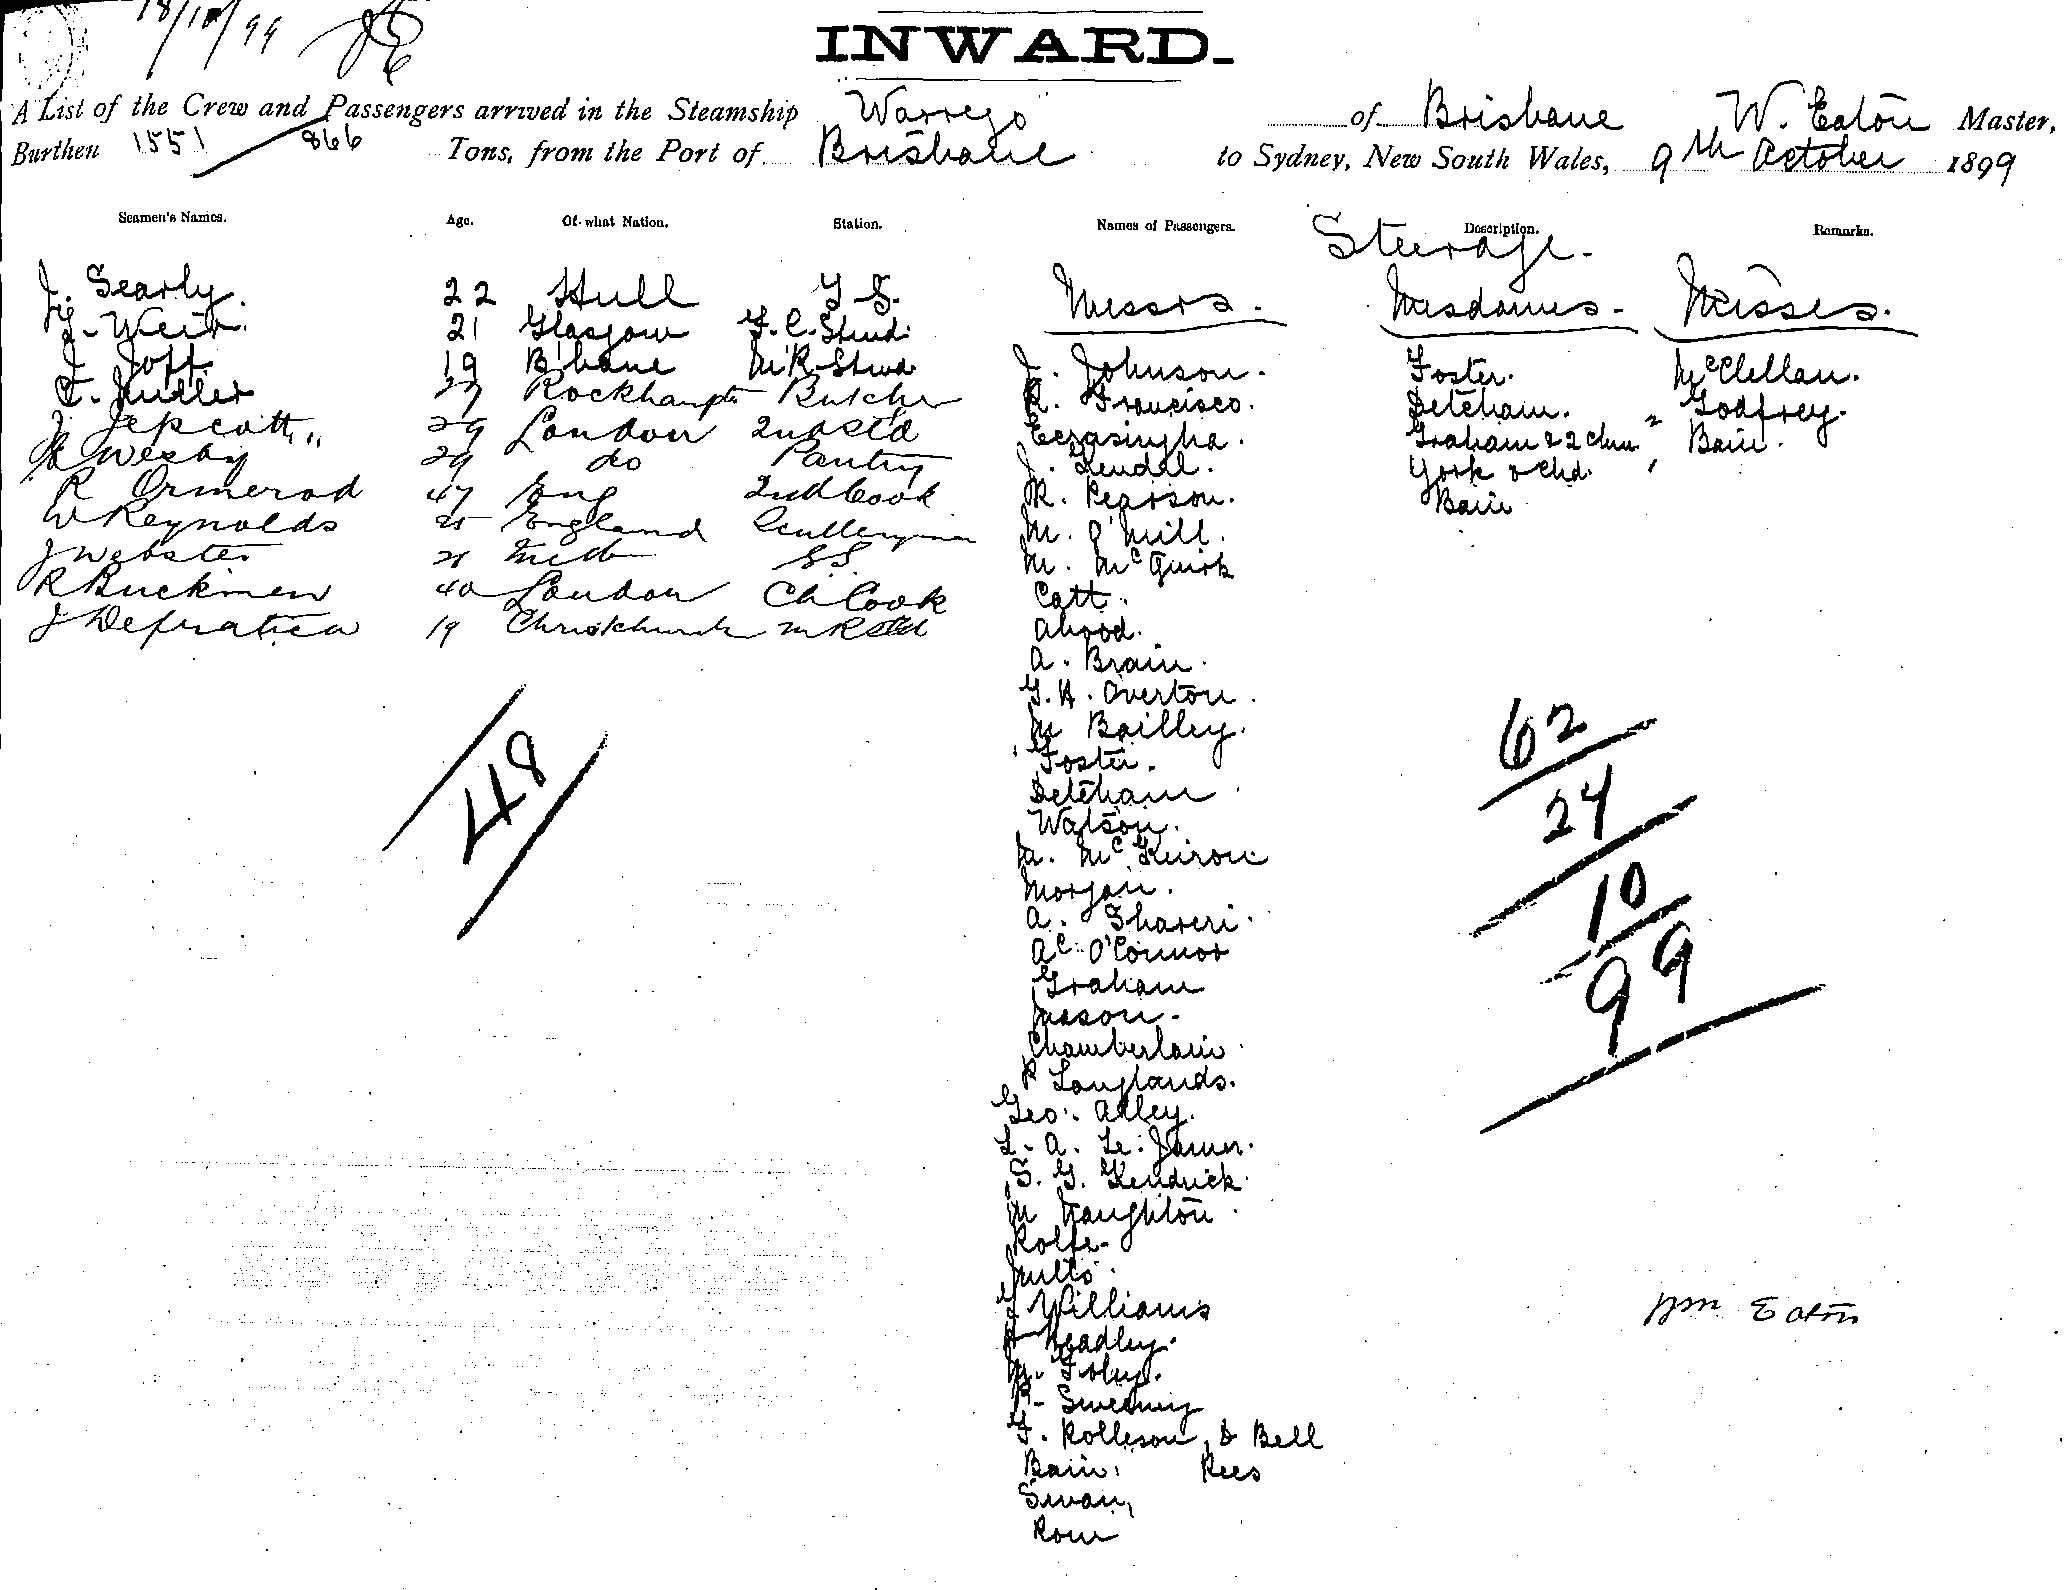 18/10/99
INWARD.
A List of the Crew and Passengers arrived in the Steamship Warrego of Brisbane W. Eaton Master,
Burthen 1551 / 866 Tons, from the Port of Brisbane to Sydney, New South Wales, 9th October 1899
Seamen's Names. Age. Of what Nation. Station. Names of Passengers. Description. Remarks.
Steerage.
J. Searly. 22 Hull
Weir. 21 Glasgow F.C. Stwd.
J. Joff 19 B'bane M.R. Stwd
27 Rockhampt Butcher
J. Jepcott 29 London 2nd Std
Wesby 29 do Pantry
R Ormerod 47 Eng 2nd Cook
W Reynolds England Sculleryman
J Webster
R Buckmen 40 London Ch Cook
19 Christchurch
48
Messrs. Mesdames. Misses.
J. Johnson. Foster. McClellan.
R. Francisco. Deteham. " Godfrey.
Eerasingha. Graham & 2 Chn " Bain.
J. Kendal. York & Chd.
R. Pearson. Bain
M. O'Neill.
M. McGuirk
Catt.
Ahood.
A. Brain.
G. H. Overton.
M Bailley.
Foster.
Deteham
Watson.
Morgan.
A.
O'Connor
Graham
Mason.
Chamberlain.
R Langlands.
Geo. Arley.
S. G. Kendrick.
M Naughton.
Rolfe.
Williams
Headley.
M. Foley.
P. Sweeney
F. Rolleson, & Bell
Bain, Rees
Swan,
62
24
10
99
Wm Eaton